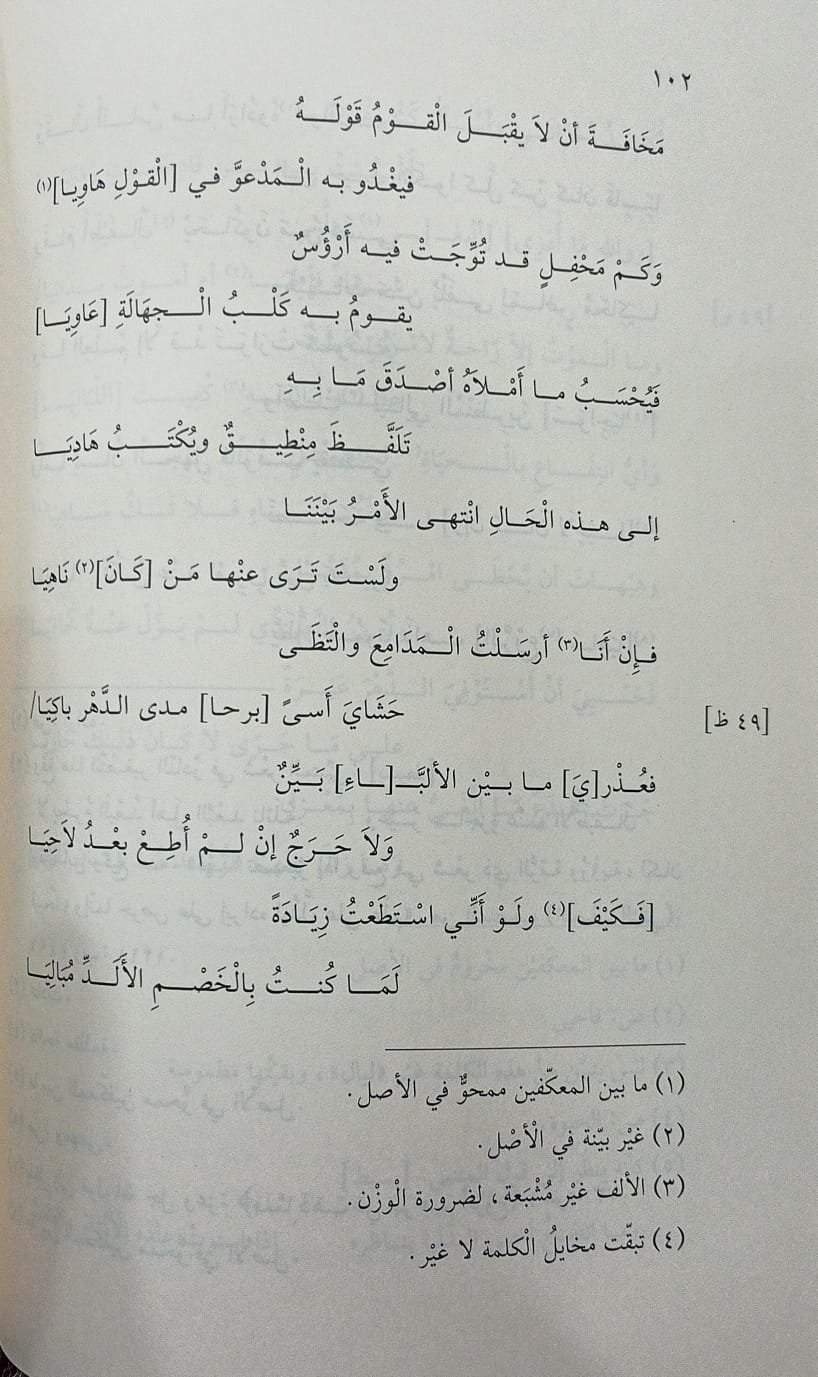 ١٠٢
مَخَافَةَ أنْ لاَ يقْبَلَ الْقوْمُ قوْلَهُ
فيغْدُو به الْمَدْعوَّ في [الْقوْلِ هَاوِيا](١)
وَكَمْ مَحْفِلٍ قد تُوِّجَتْ فيه أَرْؤُسٌ
يقومُ به كَلْبُ الْجهَالَةِ [عَاوِيَا]
فَيُحْسَبُ ما أَمْلاَهُ أصْدَقَ مَا بِهِ
تَلَفَّظَ مِنْطِيقٌ ويُكْتَبُ هَادِيَا
إلى هذه الْحَالِ انْتهى الأَمْرُ بَيْنَنَا
ولَسْتَ تَرَى عنْها مَنْ [كَانَ](٢) نَاهِيَا
فإِنْ أَنَا(٣) أرسَلْتُ الْمَدَامِعَ والْتَظَى
حَشَايَ أَسىً [برحا] مدى الدَّهْر باكِيَا/
[٤٩ ظ]
فعُذْر[يَ] ما بيْن الألبَّـ[ـاءِ] بَيِّنٌ
وَلاَ حَرَجٌ إنْ لمْ أُطِعْ بعْدُ لاَحِيَا
[فَكَيْفَ](٤) ولَوْ أَنِّي اسْتَطَعْتُ زِيَادَةً
لَمَا كُنتُ بِالْخَصْمِ الأَلَدِّ مُبَالِيَا
(١) ما بين المعكّفين ممحوٌّ في الأصل.
(٢) غيْر بيّنة في الْأصْل.
(٣) الألف غيْر مُشْبَعة، لضرورة الْوزْن.
(٤) تبقّت مخايلُ الْكلمة لا غيْر.